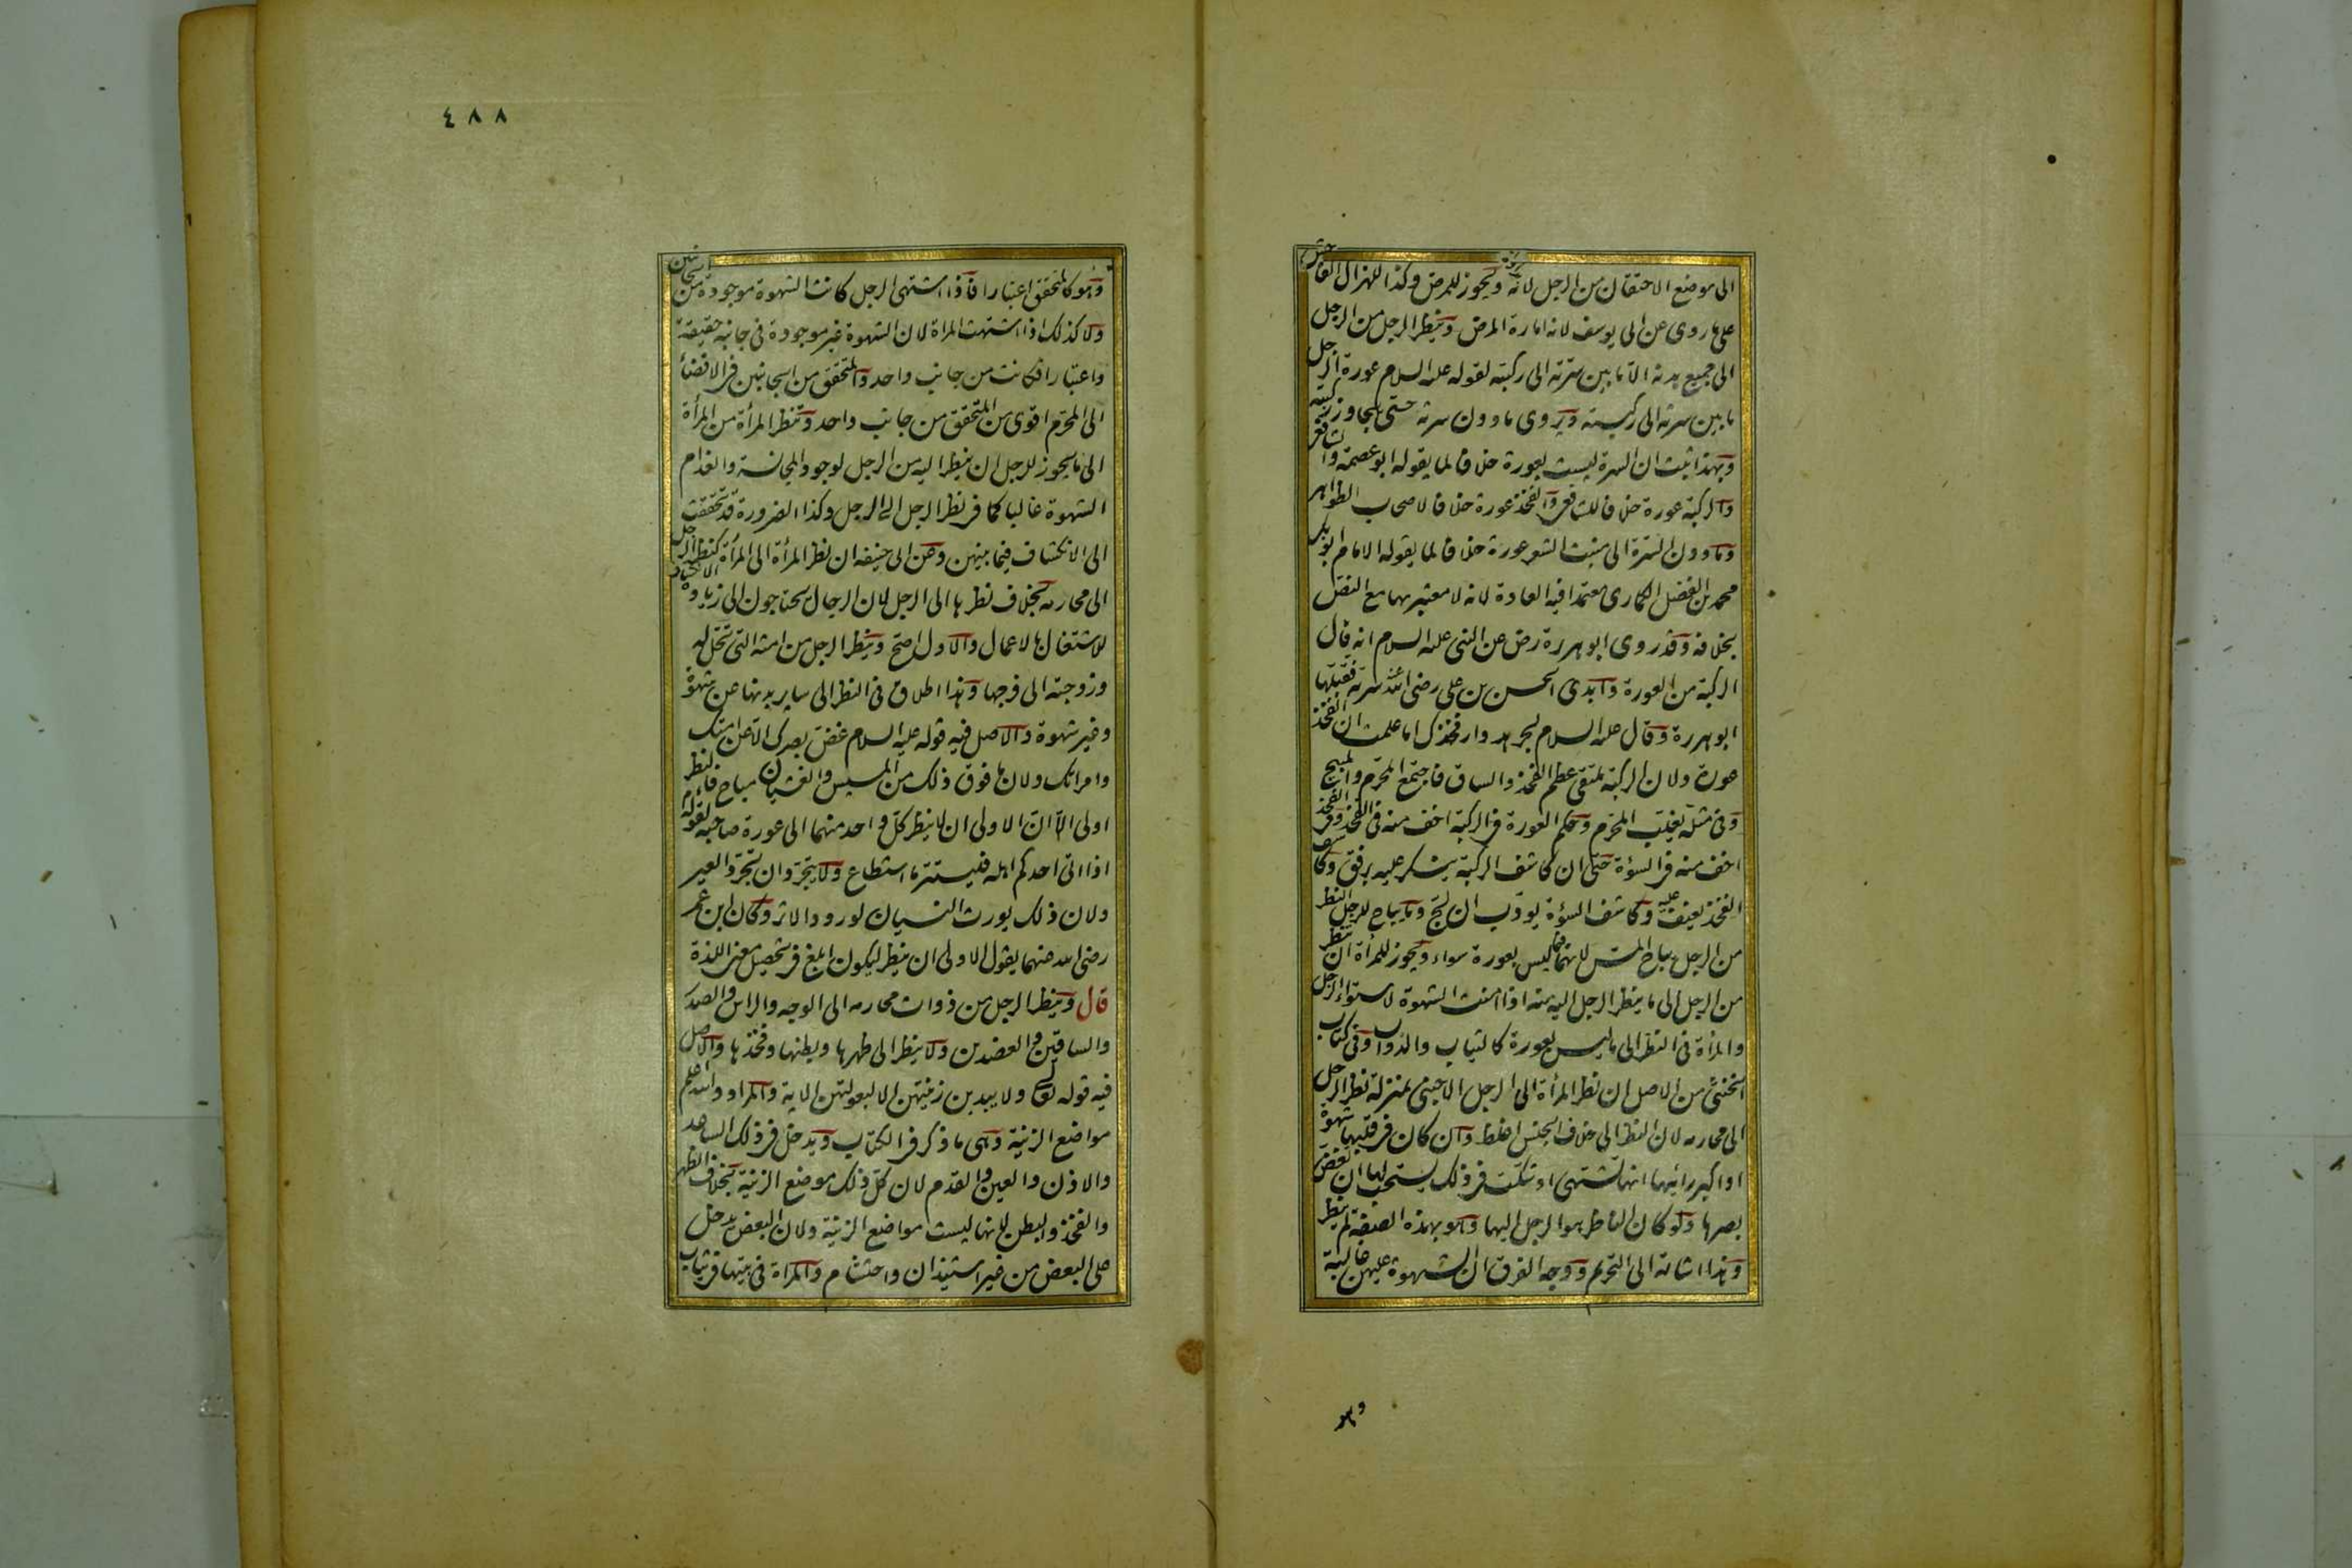 الى موضع الاحتقان من الرجل لانه مداواة ويجوز للمرض وكذا للهزال الفاحش
على ما روى عن ابى يوسف لانه امارة المرض وينظر الرجل من الرجل
الى جميع بدنه الا ما بين سرته الى ركبته لقوله عليه السلام عورة الرجل
ما بين سرته الى ركبته ويروى ما دون سرته حتى يجاوز ركبتيه
وبهذا ثبت ان السرة ليست بعورة خلافا لما يقوله ابو عصمة والشافعى
والركبة عورة خلافا للشافعى والفخذ عورة خلافا لاصحاب الظواهر
وما دون السرة الى منبت الشعر عورة خلافا لما يقوله الامام ابو بكر
محمد بن الفضل الكمارى معتمدا فيه العادة لانه لا معتبر بها مع النص
بخلافه وقد روى ابو هريرة رض عن النبى عليه السلام انه قال
الركبة من العورة وابدى الحسن بن على رضى الله عنه سرته فقبلها
ابو هريرة وقال عليه السلام لجرهد وار فخذك اما علمت ان الفخذ
عورة ولان الركبة ملتقى عظم الفخذ والساق فاجتمع المحرم والمبيح
وفى مثله يغلب المحرم وحكم العورة فى الركبة اخف منه فى الفخذ وفى الفخذ
اخف منه فى السوءة حتى ان كاشف الركبة ينكر عليه برفق وكاشف
الفخذ يعنف عليه وكاشف السوءة يودب ان لج وما يباح للرجل النظر
من الرجل يباح المس لانهما فيما ليس بعورة سواء ويجوز للمرأة ان تنظر
من الرجل الى ما ينظر الرجل اليه منه اذا امنت الشهوة لاستواء الرجل
والمرأة فى النظر الى ما ليس بعورة كالثياب والدواب وفى كتاب
الخنثى من الاصل ان نظر المرأة الى الرجل الاجنبى بمنزلة نظر الرجل
الى محارمه لان النظر الى خلاف الجنس اغلظ وان كان فى قلبها شهوة
او اكبر رائيها انها تشتهى او شكت فى ذلك يستحب لها ان تغض
بصرها ولو كان الناظر هو الرجل اليها وهو بهذه الصفة لم ينظر
وهذا اشارة الى التحريم ووجه الفرق ان الشهوة عليهن غالبة
وهو
٤٨٨
وهو كالمتحقق اعتبارا فاذا اشتهى الرجل كانت الشهوة موجودة من الجانبين
ولا كذلك اذا اشتهت المراة لان الشهوة غير موجودة فى جانبه حقيقة
واعتبارا فكانت من جانب واحد والمتحقق من الجانبين فى الافضاء
الى المحرم اقوى من المتحقق من جانب واحد وتنظر المرأة من المرأة
الى ما يجوز للرجل ان ينظر اليه من الرجل لوجود المجانسة وانعدام
الشهوة غالبا كما فى نظر الرجل الى الرجل وكذا الضرورة قد تحققت
الى الانكشاف فيما بينهن وعن ابى حنيفه ان نظر المرأة الى المرأة كنظر الرجل
الى محارمه بخلاف نظرها الى الرجل لان الرجال يحتاجون الى زيادة الانكشاف
للاشتغال بالاعمال والاول اصح وينظر الرجل من امته التى تحل له
وزوجته الى فرجها وهذا اطلاق فى النظر الى ساير بدنها عن شهوة
وغير شهوة والاصل فيه قوله عليه السلام غض بصرك الا عن امتك
وامراتك ولان ما فوق ذلك من المسيس والغشيان مباح فالنظر
اولى الا ان الاولى ان لا ينظر كل واحد منهما الى عورة صاحبه لقوله عم
اذا اتى احدكم اهله فليستتر ما استطاع ولا يتجردان تجرد العير
ولان ذلك يورث النسيان لورود الاثر وكان ابن عمر
رضى الله عنهما يقول الاولى ان ينظر ليكون ابلغ فى تحصيل معنى اللذة
قال وينظر الرجل من ذوات محارمه الى الوجه والراس والصدر
والساقين والعضدين ولا ينظر الى ظهرها وبطنها وفخذها والاصل
فيه قوله تعالى ولا يبدين زينتهن الا لبعولتهن الاية والمراد والله اعلم
مواضع الزينة وهى ما ذكر فى الكتاب ويدخل فى ذلك الساعد
والاذن والعين والقدم لان كل ذلك موضع الزينة بخلاف الظهر
والفخذ والبطن لانها ليست مواضع الزينة ولان البعض يدخل
على البعض من غير استيذان واحتشام والمراة فى بيتها فى ثياب